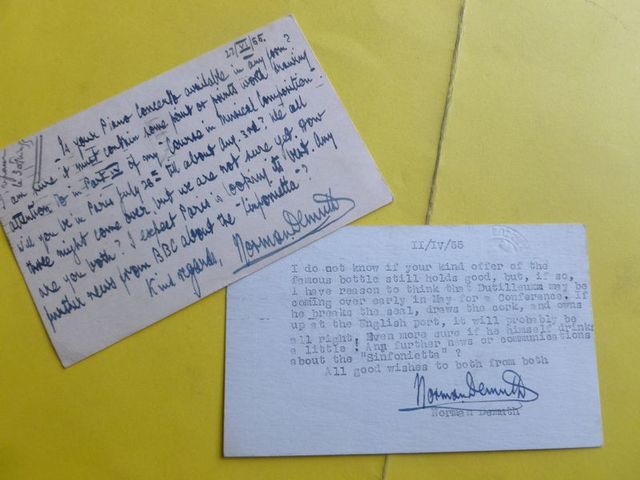 27/VI/55.
Is your Piano Concerto available in any form? I
am sure it must contain some point or points worth drawing
attention to in Part IV of my "Course in Musical Composition".
Will you be in Paris July 28th till about Aug. 3rd? We all
three might come over, but we are not sure yet. How
are you both? I expect Paris is looking its best. Any
further news from BBC about the "Sinfonietta"?
Kind regards,
Norman Demuth
II/IV/55
I do not know if your kind offer of the
famous bottle still holds good, but, if so,
i have reason to think that Dutilleux may be
coming over early in May for a Conference. If
he breaks the seal, draws the cork, and owns
up at the English port, it will probably be
all right! Even more sure if he himself drinks
a little! Any further news or communications
about the "Sinfonietta" ?
All good wishes to both from both
Norman Demuth
Norman Demuth